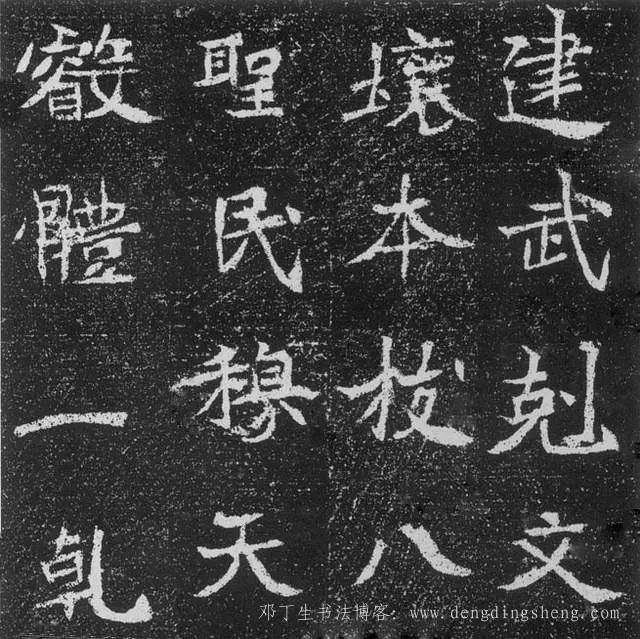 建武剋文
壤本枝八
聖民穆天
叡體一乹
邓丁生书法博客:www.dengdingsheng.com